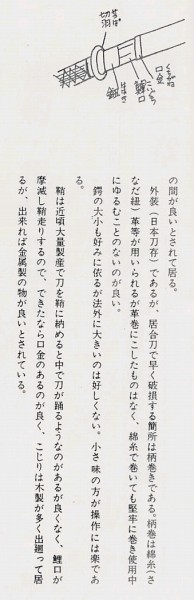 切羽
せっぱ
鎺
はばき
鯉口
こいくち
口金
くちがね
の間が良いとされて居る。
外装（日本刀存）であるが、居合刀で早く破損する箇所は柄巻きである。柄巻は綿糸（さ
なだ紐）革等が用いられるが革巻にこしたものはなく、綿糸で巻いても堅牢に巻き使用中
にゆるむことのないのが良い。
鍔の大小も好みに依るが法外に大きいのは好しくない。小さ味の方が操作には楽であ
る。
鞘は近頃大量製産で刀を鞘に納めると中で刀が踊るようなのがあるが良くなく、鯉口が
摩滅し鞘走りするので、できたなら口金のあるのが良く、こじりは木製が多く出廻って居
るが、出来れば金属製の物が良いとされている。